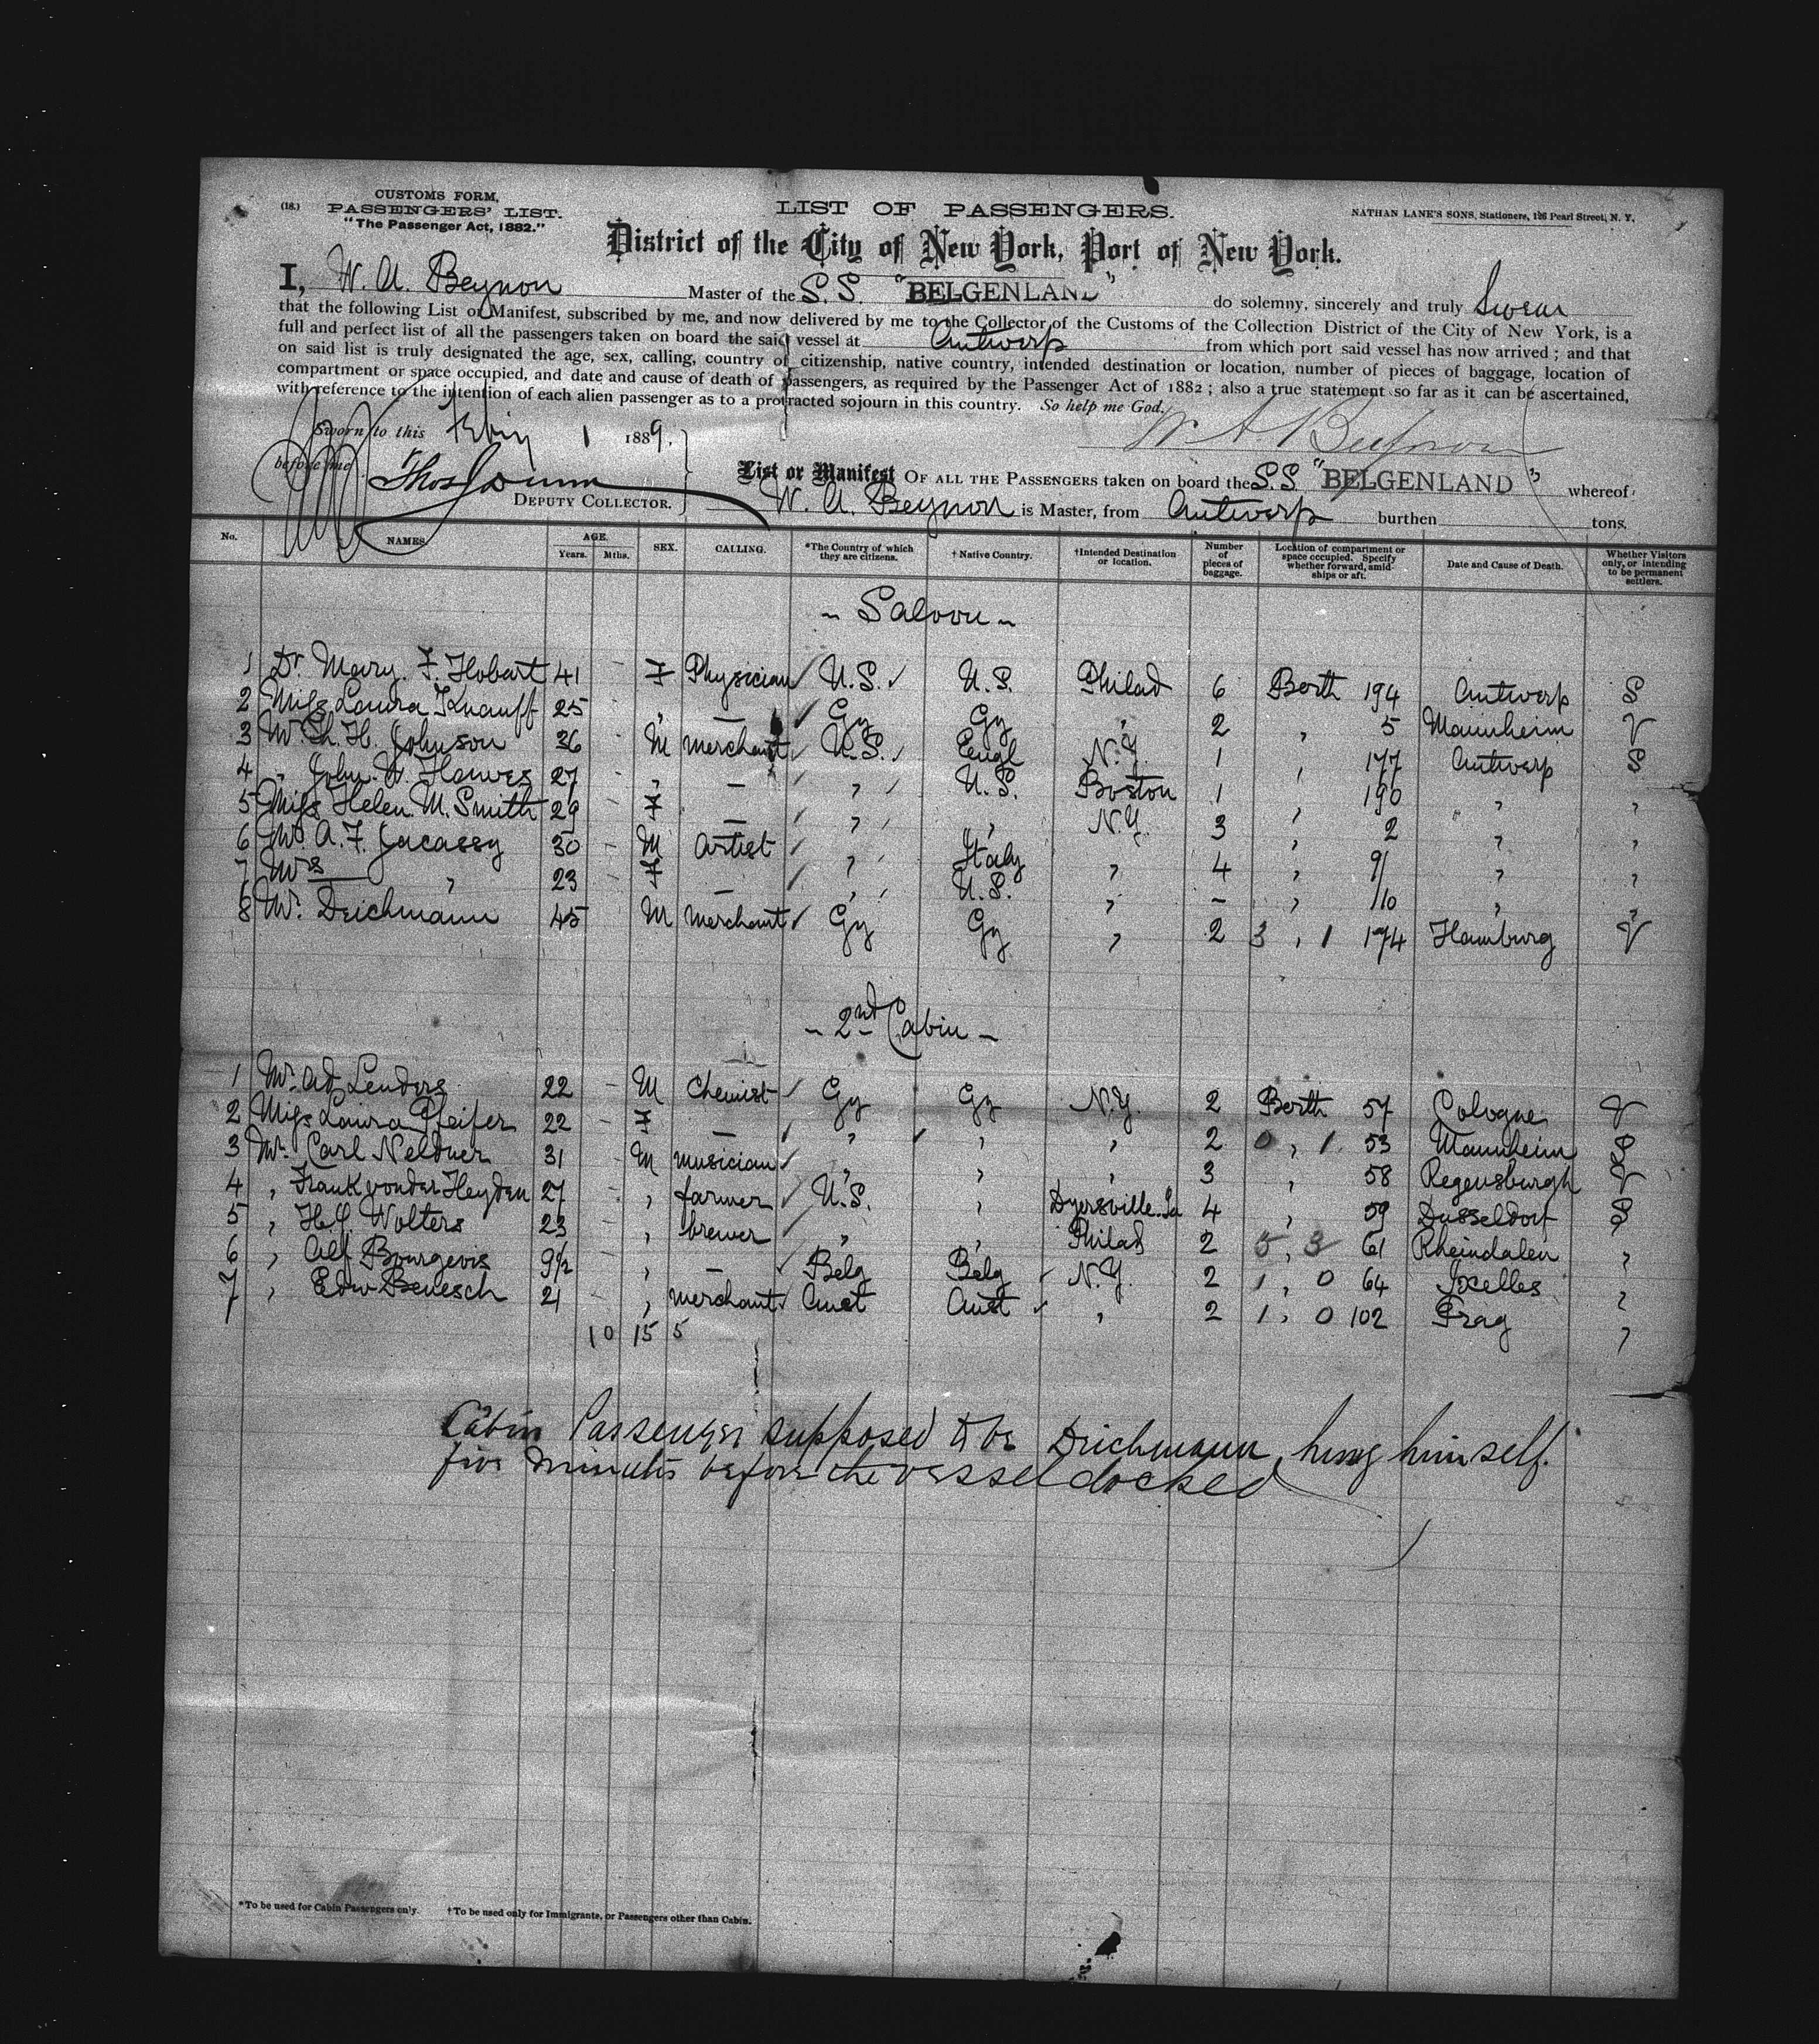 CUSTOMS FORM,
(18.) PASSENGERS' LIST.
"The Passenger Act, 1882."
LIST OF PASSENGERS.
NATHAN LANE'S SONS, Stationers, 126 Pearl Street, N. Y.
District of the City of New York, Port of New York.
I, W. A. Beynon Master of the S.S. "BELGENLAND" do solemny, sincerely and truly Swear
that the following List or Manifest, subscribed by me, and now delivered by me to the Collector of the Customs of the Collection District of the City of New York, is a
full and perfect list of all the passengers taken on board the said vessel at Antwerp from which port said vessel has now arrived; and that
on said list is truly designated the age, sex, calling, country of citizenship, native country, intended destination or location, number of pieces of baggage, location of
compartment or space occupied, and date and cause of death of passengers, as required by the Passenger Act of 1882; also a true statement so far as it can be ascertained,
with reference to the intention of each alien passenger as to a protracted sojourn in this country. So help me God.
W A Beynon
Sworn to this 1 1889.
before me
DEPUTY COLLECTOR.
List or Manifest OF ALL THE PASSENGERS taken on board the S.S "BELGENLAND" whereof
W. A. Beynon is Master, from Antwerp burthen tons.
No. NAMES. AGE. Years. Mths. SEX. CALLING. *The Country of which they are citizens. † Native Country. †Intended Destination or location. Number of pieces of baggage. Location of compartment or space occupied. Specify whether forward, amidships or aft. Date and Cause of Death. Whether Visitors only, or intending to be permanent settlers.
- Saloon -
1 Dr Mary. F. Hobart 41 - F Physician U.S. U.S. Philad 6 Berth 194 Antwerp S
2 Miss Laura Knauff 25 - " — Gy Gy " 2 " 5 Mannheim V
3 Mr. Ch. H. Johnson 36 - M merchant U.S. Engl N.Y. 1 " 177 Antwerp S
4 " John. W. Hawes 27 - " — " U.S. Boston 1 " 190 " "
5 Miss Helen M. Smith 29 - F — " " N.Y. 3 " 2 " "
6 Mr. A. F. Jacassy 30 - M Artist " Italy " 4 " 9/ " "
7 Mrs — " 23 - F — " U.S. " - " /10 " "
8 Mr. Deichmann 45 M merchant Gy Gy " 2 3 " 1 174 Hamburg V
- 2nd Cabin -
1 Mr. Ad Lenders 22 - M Chemist Gy Gy N.Y. 2 Berth 57 Cologne V
2 Miss Laura Pfeifer 22 - F — " " " 2 0 " 1 53 Mannheim S
3 Mr. Carl Neldner 31 - M musician " " " 3 " 58 Regensburgh V
4 " Frank vonder Heyden 27 - " farmer U.S. " Dyersville. Ia 4 " 59 Dusseldorf S
5 " H.J. Wolters 23 - " brewer " " Philad 2 5 " 3 61 Rheindalen "
6 " Alf Bourgeois 9½ - " — Belg Belg N.Y. 2 1 " 0 64 Ixelles "
7 " Edw Benesch 21 - " merchant Aust Aust " 2 1 " 0 102 Prag "
10 15 5
Cabin Passenger supposed to be Deichmann, hung himself.
five minutes before the vessel docked
*To be used for Cabin Passengers only. †To be used only for Immigrants, or Passengers other than Cabin.